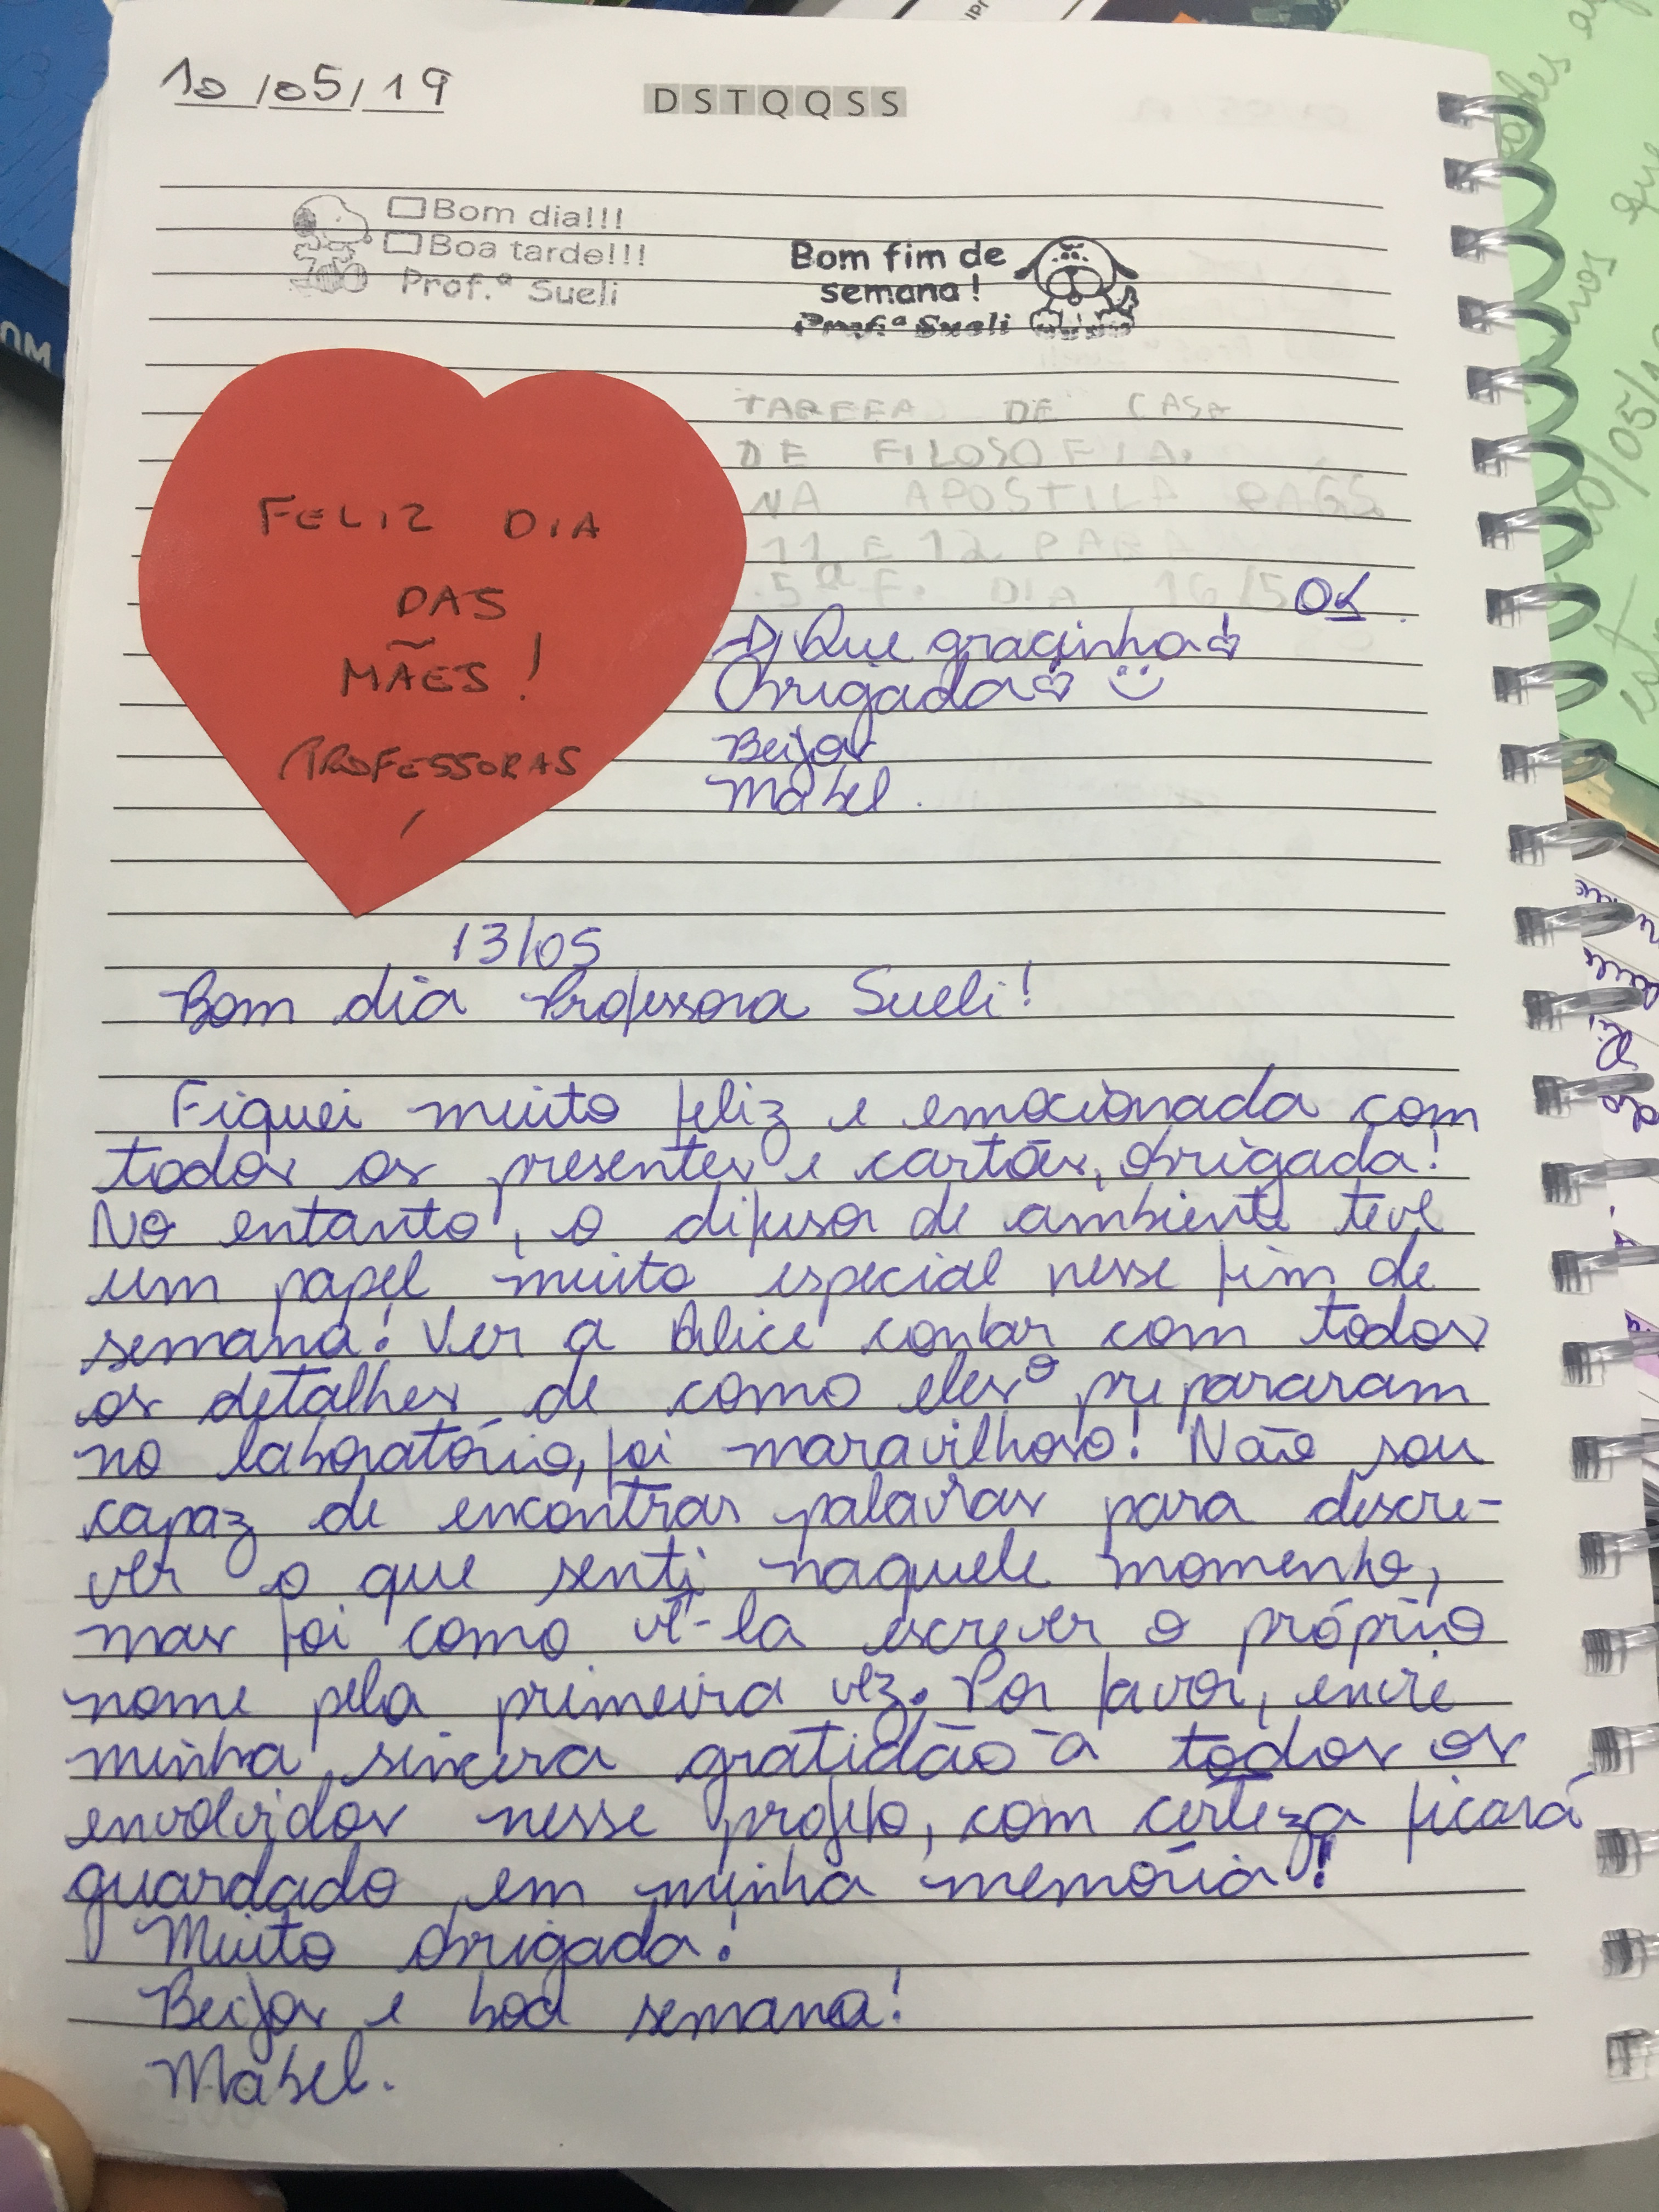 10/05/19
DSTQQSS
Bom dia!!!
Boa tarde!!!
Prof.ª Sueli
Bom fim de
semana!
Prof.ª Sueli
FELIZ DIA
DAS
MÃES!
PROFESSORAS
TAREFA DE CASA
DE FILOSOFIA.
NA APOSTILA PÁGS
11 E 12 PARA
5ª F. DIA 16/5
OK
Que gracinha
Obrigada
Beijos
Mabel.
13/05
Bom dia Professora Sueli!
Fiquei muito feliz e emocionada com
todos os presentes e cartões, obrigada!
No entanto, o difusor de ambiente teve
um papel muito especial nesse fim de
semana! Ver a Alice contar com todos
os detalhes de como eles o prepararam
no laboratório, foi maravilhoso! Não sou
capaz de encontrar palavras para descre-
ver o que senti naquele momento,
mas foi como vê-la escrever o próprio
nome pela primeira vez. Por favor, envie
minha sincera gratidão à todos os
envolvidos nesse projeto, com certeza ficará
guardado em minha memória!
Muito obrigada!
Beijos e boa semana!
Mabel.